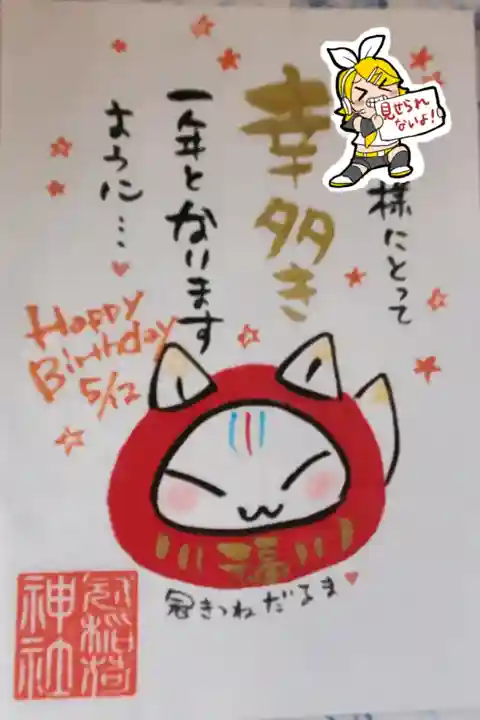 見せられ
ないよ!
様にとって
幸多き
一年となります
ように…
Happy
Birthday
5/12
福
冠きつねだるま
冠稲荷
神社